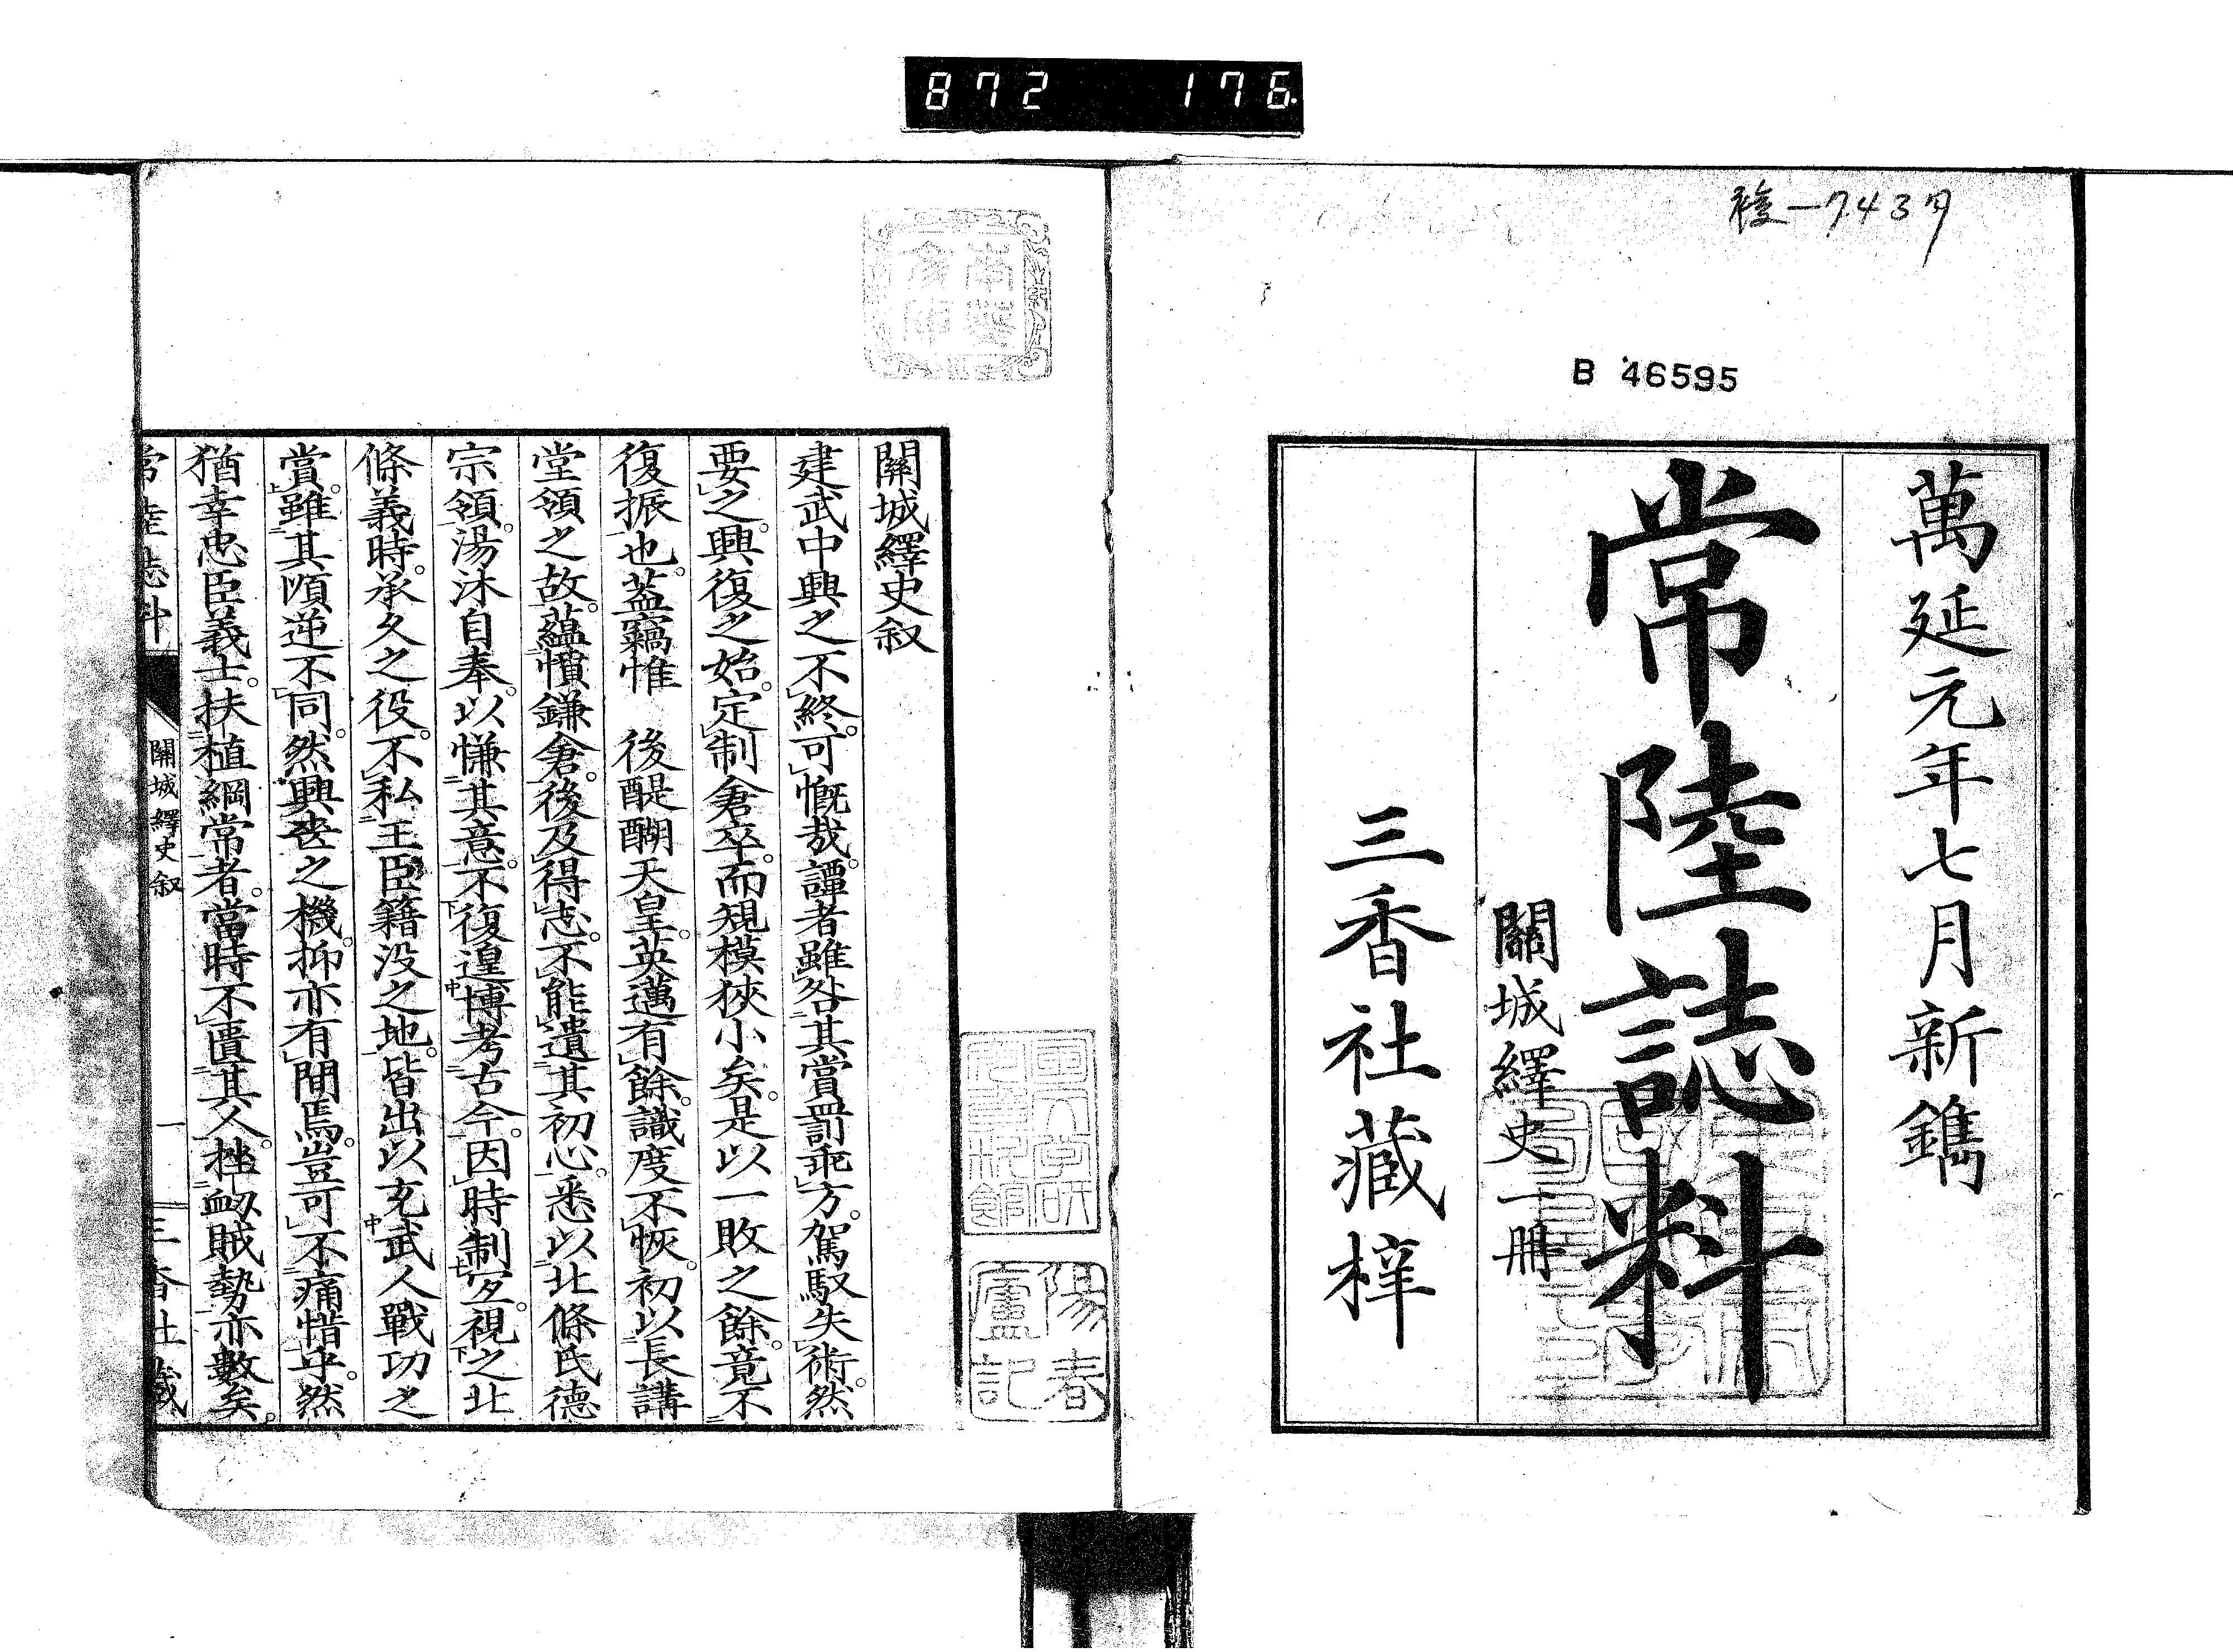 872 176
複一7437
B 46595
萬延元年七月新鐫
常陸誌料
關城繹史一冊
三香社藏梓
關城繹史叙
建武中興之不終可慨哉譚者雖咎其賞罰乖方駕馭失術然
要之興復之始定制倉卒而規模狹小矣是以一敗之餘竟不
復振也蓋竊惟 後醍醐天皇英邁有餘識度不恢初以長講
堂領之故蘊憤鎌倉後及得志不能遺其初心悉以北條氏德
宗領湯沐自奉以慊其意不復遑博考古今因時制宐視之北
條義時承久之役不私王臣籍没之地皆出以充武人戰功之
賞雖其順逆不同然興喪之機抑亦有間焉豈可不痛惜乎然
猶幸忠臣義士扶植綱常者當時不匱其人挫衂賊勢亦數矣
常陸誌料 關城繹史叙 一 三香社藏
陽春
廬記